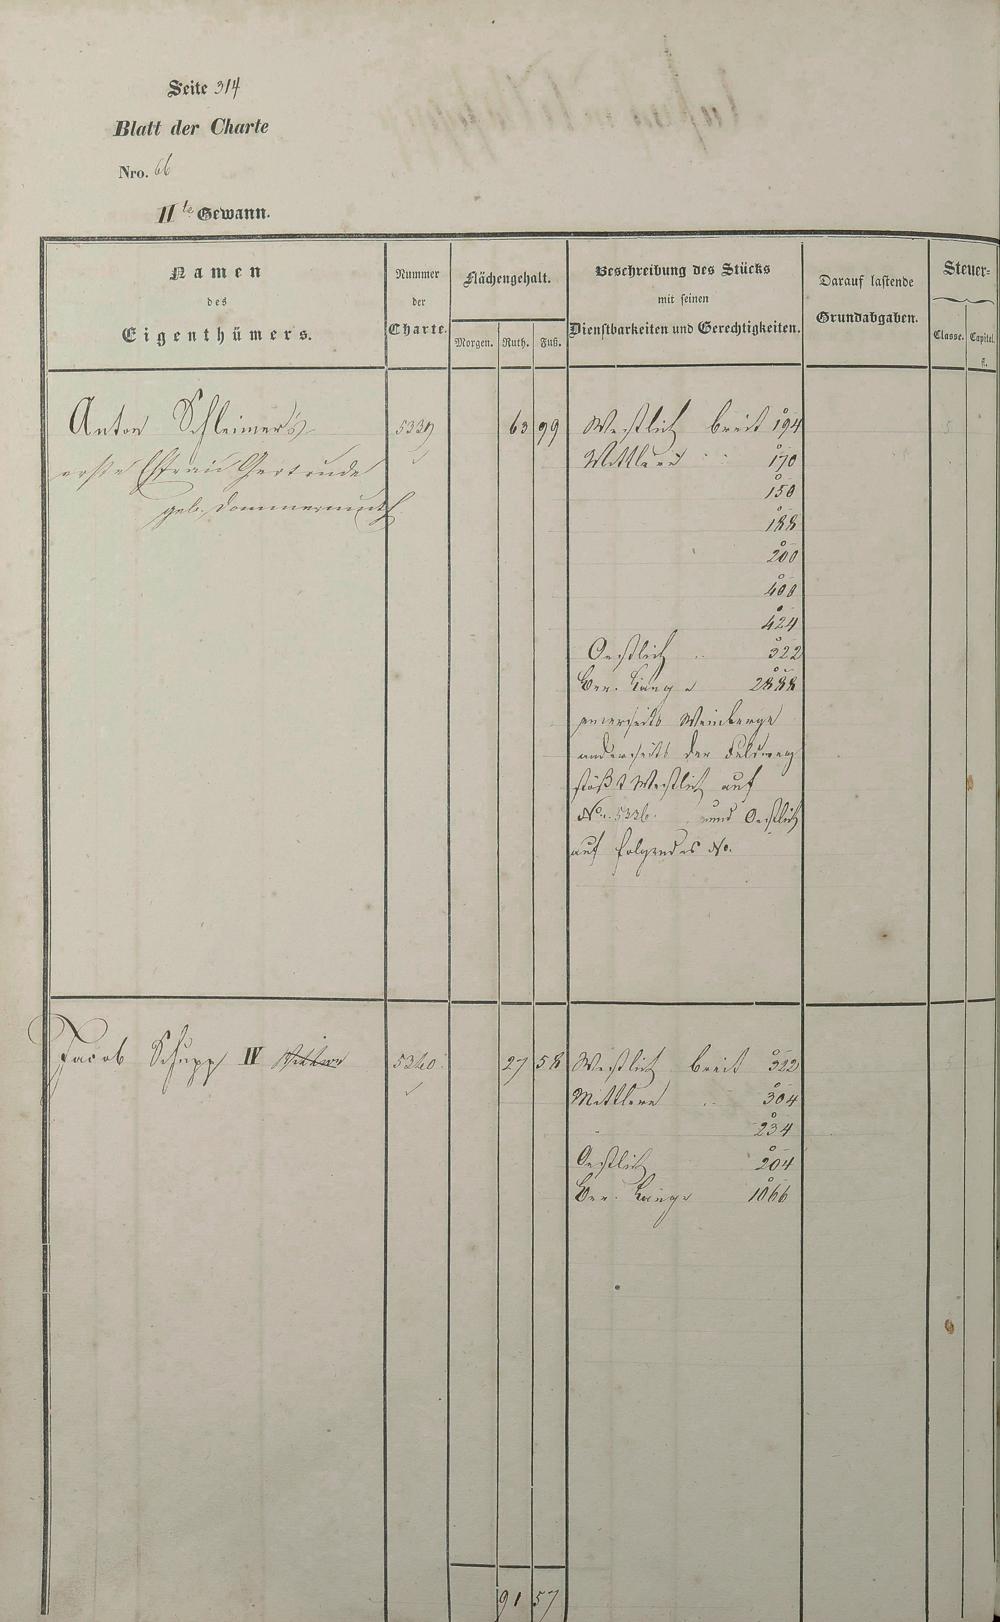 Seite 314
Blatt der Charte
Nro. 66
IIte Gewann.
Namen des Eigenthümers.
Nummer der Charte.
Flächengehalt.
Morgen. Ruth. Fuß.
Beschreibung des Stücks mit seinen Dienstbarkeiten und Gerechtigkeiten.
Darauf lastende Grundabgaben.
Steuer=
Classe. Capitel. fl.
Anton Schleimer's 5339 63 99 Westlich breit 194
erste Ehfrau Gertrude Mittlere " 170
geb. Dommermuth 150
188
200
400
424
Oestlich " 322
Ver. Länge 2888
einerseits Weinberge
anderseits der Feldweg
stößt Westlich auf
No. 5336. und Oestlich
auf folgendes No.
Jacob Schupp IV Wittwe 5340 27 58 Westlich breit 322
Mittlere " 304
234
Oestlich 204
Ver. Länge 1066
91 57